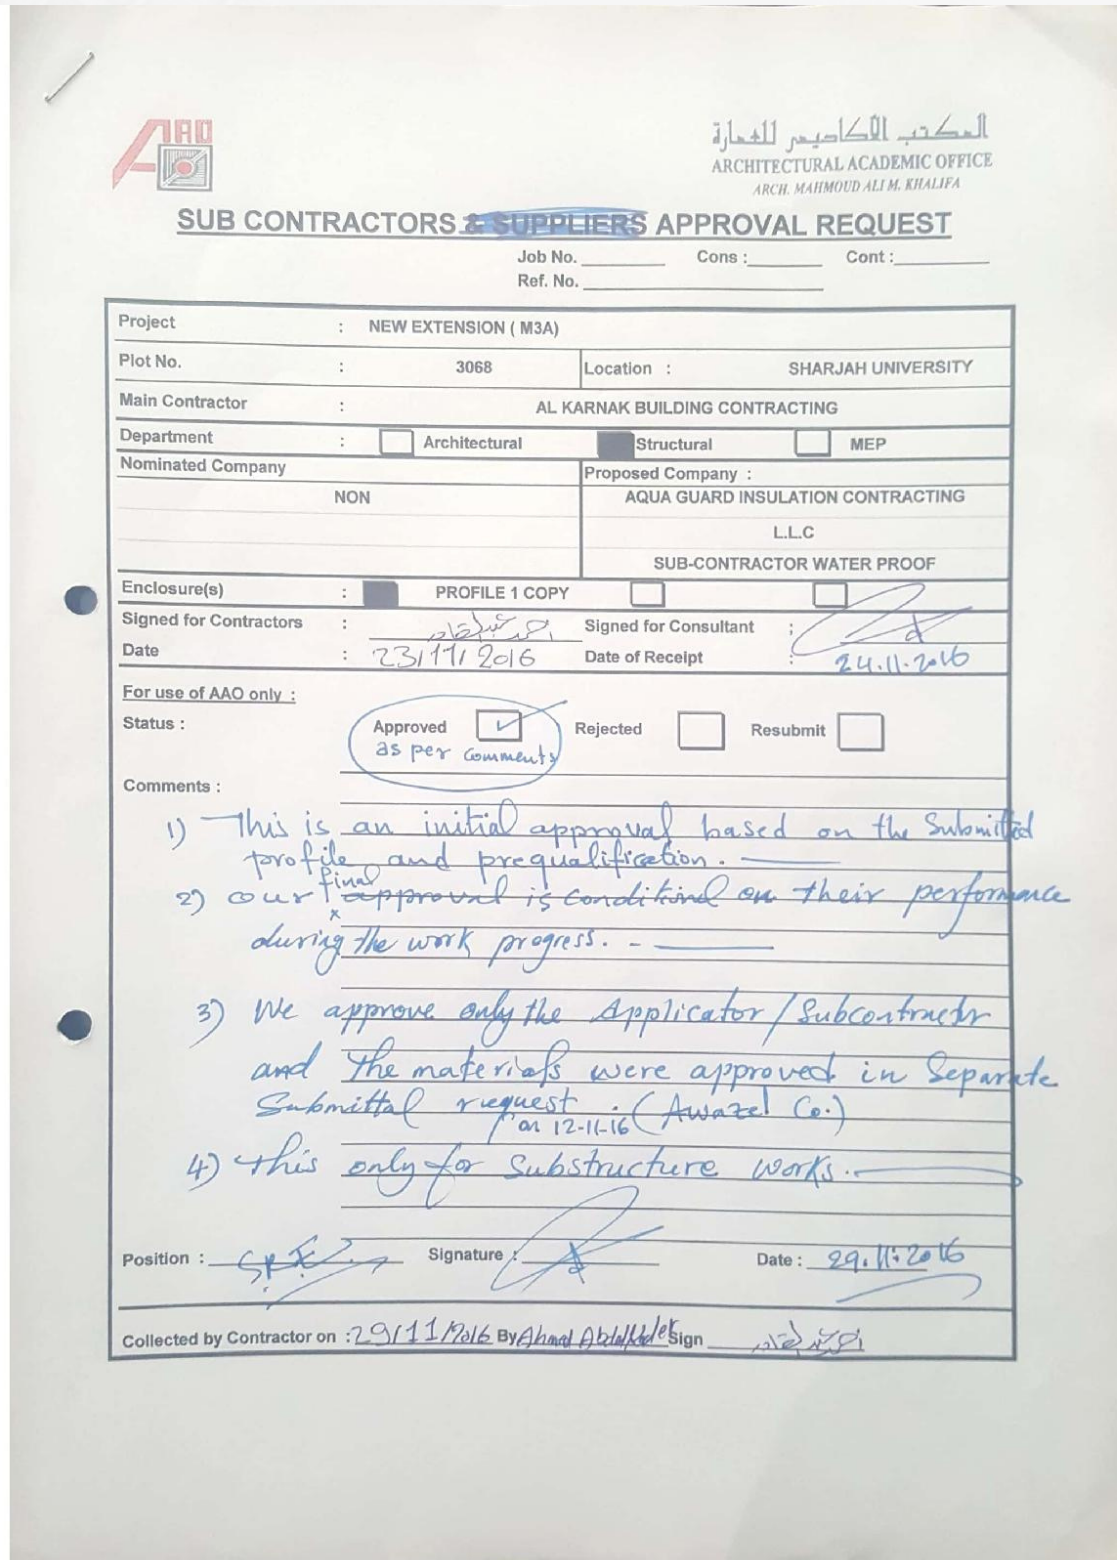 AAO
المكتب الأكاديمي للعمارة
ARCHITECTURAL ACADEMIC OFFICE
ARCH. MAHMOUD ALI M. KHALIFA
SUB CONTRACTORS & SUPPLIERS APPROVAL REQUEST
Job No. Cons : Cont :
Ref. No.
Project : NEW EXTENSION ( M3A)
Plot No. : 3068 Location : SHARJAH UNIVERSITY
Main Contractor : AL KARNAK BUILDING CONTRACTING
Department : Architectural Structural MEP
Nominated Company Proposed Company :
NON AQUA GUARD INSULATION CONTRACTING
L.L.C
SUB-CONTRACTOR WATER PROOF
Enclosure(s) : PROFILE 1 COPY
Signed for Contractors : Signed for Consultant :
Date : 23/11/2016 Date of Receipt : 24.11.2016
For use of AAO only :
Status : Approved Rejected Resubmit
as per comments
Comments :
1) This is an initial approval based on the Submitted
profile and prequalification.
final
2) our approval is conditional on their performance
during the work progress. -
3) We approve only the Applicator/Subcontractor
and the materials were approved in Separate
Submittal request . (Awazel Co.)
on 12-11-16
4) this only for Substructure works.
Position : Signature : Date : 29.11.2016
Collected by Contractor on : 29/11/2016 By Ahmad Sign